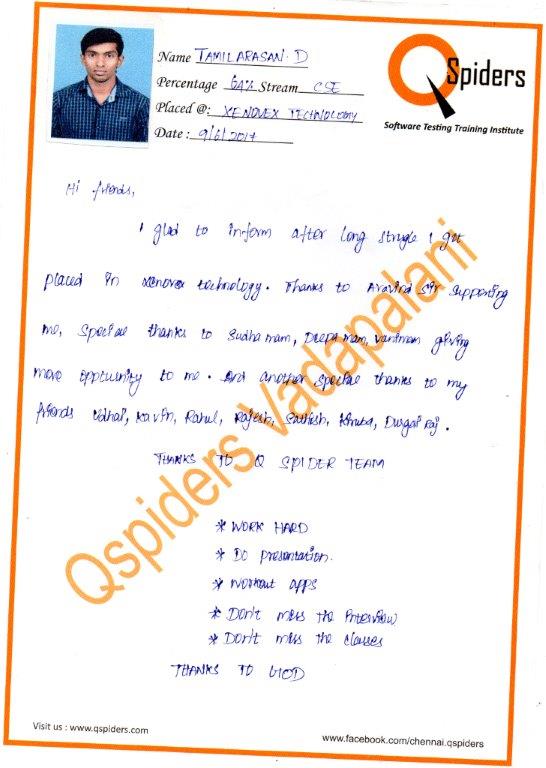 Name TAMILARASAN.D
Percentage 64% Stream CSE
Placed @: XENOVEX TECHNOLOGY
Date : 9/6/2017
QSpiders
Software Testing Training Institute
Hi friends,
I glad to inform after long strugle I got
placed in xenovex technology. Thanks to Aravind sir supporting
me, special thanks to Sudha mam, Deepa mam, giving
more to me. And another special thanks to my
friends Udhai, Kavin, Rahul, Rajesh, Sathish, Durgai Raj.
THANKS TO Q SPIDER TEAM
* WORK HARD
* Do presentation.
* Workout apps
* Don't miss the Interview
* Don't miss the classes
THANKS TO GOD
Qspiders Vadapalani
Visit us : www.qspiders.com
www.facebook.com/chennai.qspiders